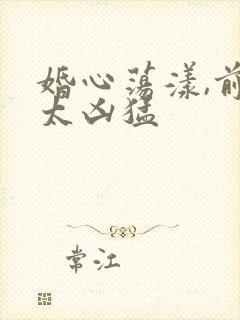 婚心荡漾,前
太凶猛
常江